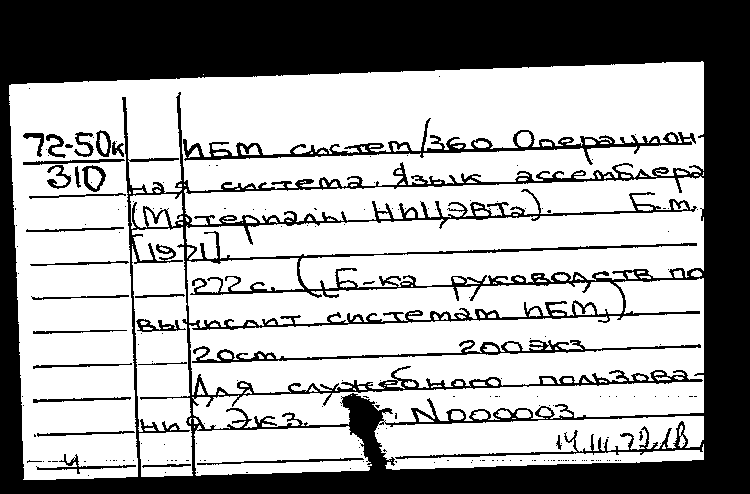 72-50к
310
ИБМ систем/360 Операцион-
ная система. Язык ассемблера
(Материалы НИЦЭВТа). Б.м.,
[1971].
272 с. („Б-ка руководств по
вычислит системам ИБМ„)
20см. 200экз
Для служебного пользова-
ния. Экз. N000003.
14.III.72.
ч